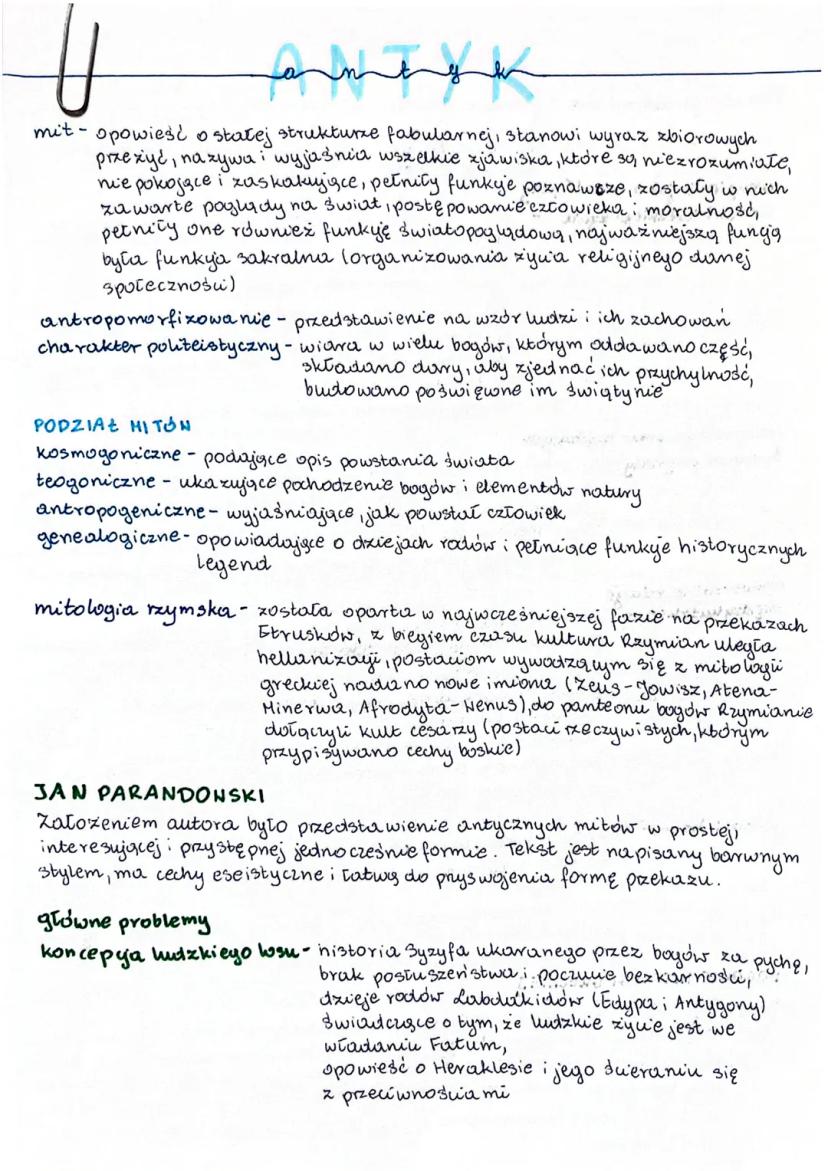 ANTYK
antyk
mit - opowieść o stałej strukturze fabularnej, stanowi wyraz zbiorowych
przeżyć, nazywa i wyjaśnia wszelkie zjawiska, które są niezrozumiałe,
niepokojące i zaskakujące, pełniły funkcje poznawcze, zostały w nich
zawarte poglądy na świat, postępowanie człowieka i moralność,
pełniły one również funkcję światopoglądową, najważniejszą funcją
była funkcja sakralna (organizowania życia religijnego danej
społeczności)
antropomorfizowanie - przedstawienie na wzór ludzi i ich zachowań
charakter politeistyczny - wiara w wielu bogów, którym oddawano część,
składano dary, aby zjednać ich przychylność,
budowano poświęcone im świątynie
PODZIAŁ MITÓW
kosmogoniczne - podające opis powstania świata
teogoniczne - ukazujące pochodzenie bogów i elementów natury
antropogeniczne - wyjaśniające, jak powstał człowiek
genealogiczne - opowiadające o dziejach rodów i pełniące funkcje historycznych
legend
mitologia rzymska - została oparta w najwcześniejszej fazie na przekazach
Etrusków, z biegiem czasu kultura Rzymian uległa
hellanizacji, postaciom wywodzącym się z mitologii
greckiej nadano nowe imiona (Zeus - Jowisz, Atena -
Minerwa, Afrodyta - Wenus), do panteonu bogów Rzymianie
dołączyli kult cesarzy (postaci rzeczywistych, którym
przypisywano cechy boskie)
JAN PARANDOWSKI
Założeniem autora było przedstawienie antycznych mitów w prostej,
interesującej i przystępnej jednocześnie formie. Tekst jest napisany barwnym
stylem, ma cechy eseistyczne i łatwą do pryswojenia formę przekazu.
główne problemy
koncepcja ludzkiego losu - historia Syzyfa ukaranego przez bogów za pychę,
brak posłuszeństwa i poczucie bezkarności,
dzieje rodów Labdakidów (Edypa i Antygony)
świadczące o tym, że ludzkie życie jest we
władaniu Fatum,
opowieść o Heraklesie i jego ścieraniu się
z przeciwnościami